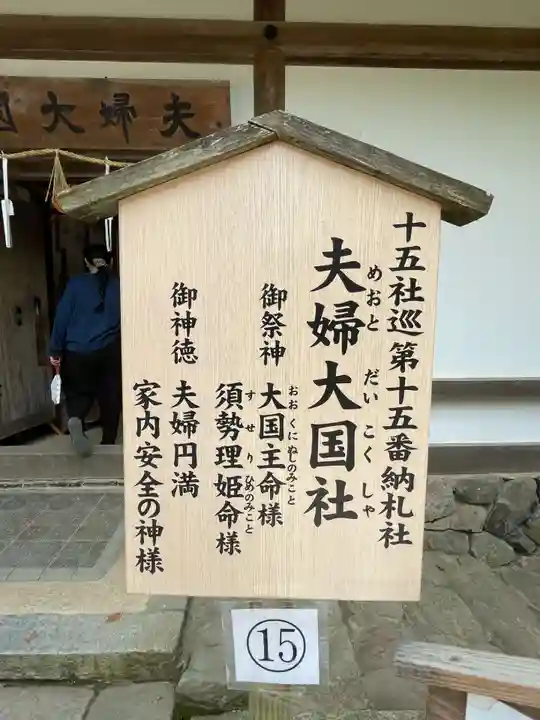 夫婦大国
十五社巡第十五番納札社
夫婦大国社
めおと だいこくしゃ
御祭神 大国主命様
おおくにぬしのみこと
須勢理姫命様
すせりひめのみこと
御神徳 夫婦円満
家内安全の神様
⑮